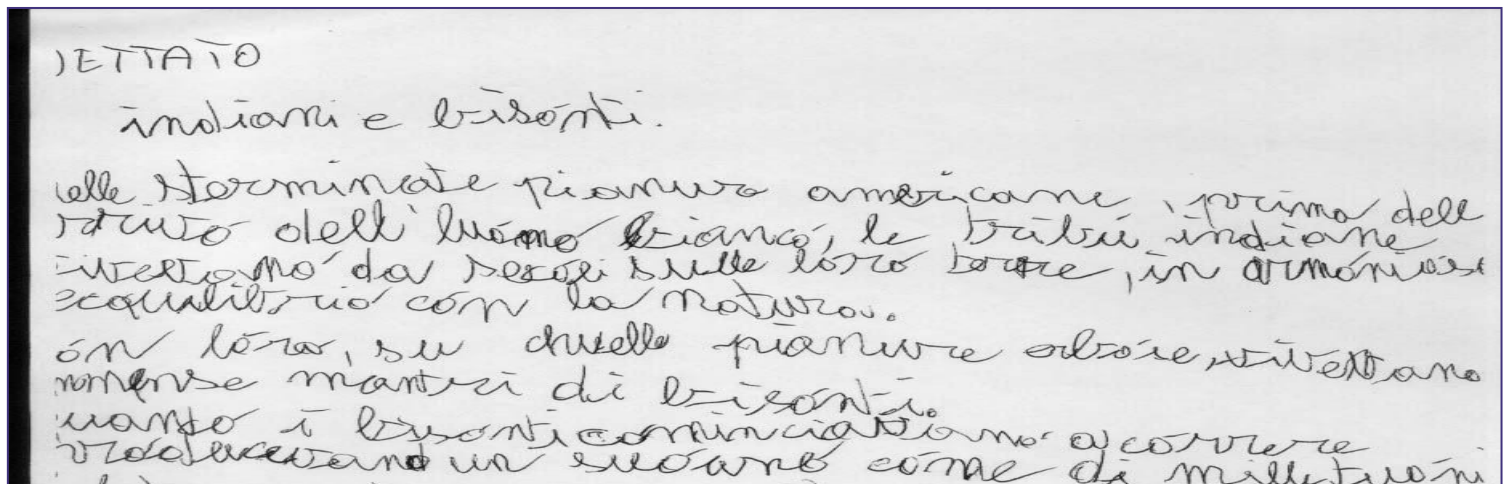 DETTATO
indiani e bisonti.
elle sterminate pianure americane, prima dell
dell'luomo bianco, le tribù indiane
da secoli sulle loro terre, in armonios
equilibrio con la natura.
on loro, su chuelle pianure erbose,
mmense mantri di bisonti.
uanto i bisonti a correre
un come di mille tuoni